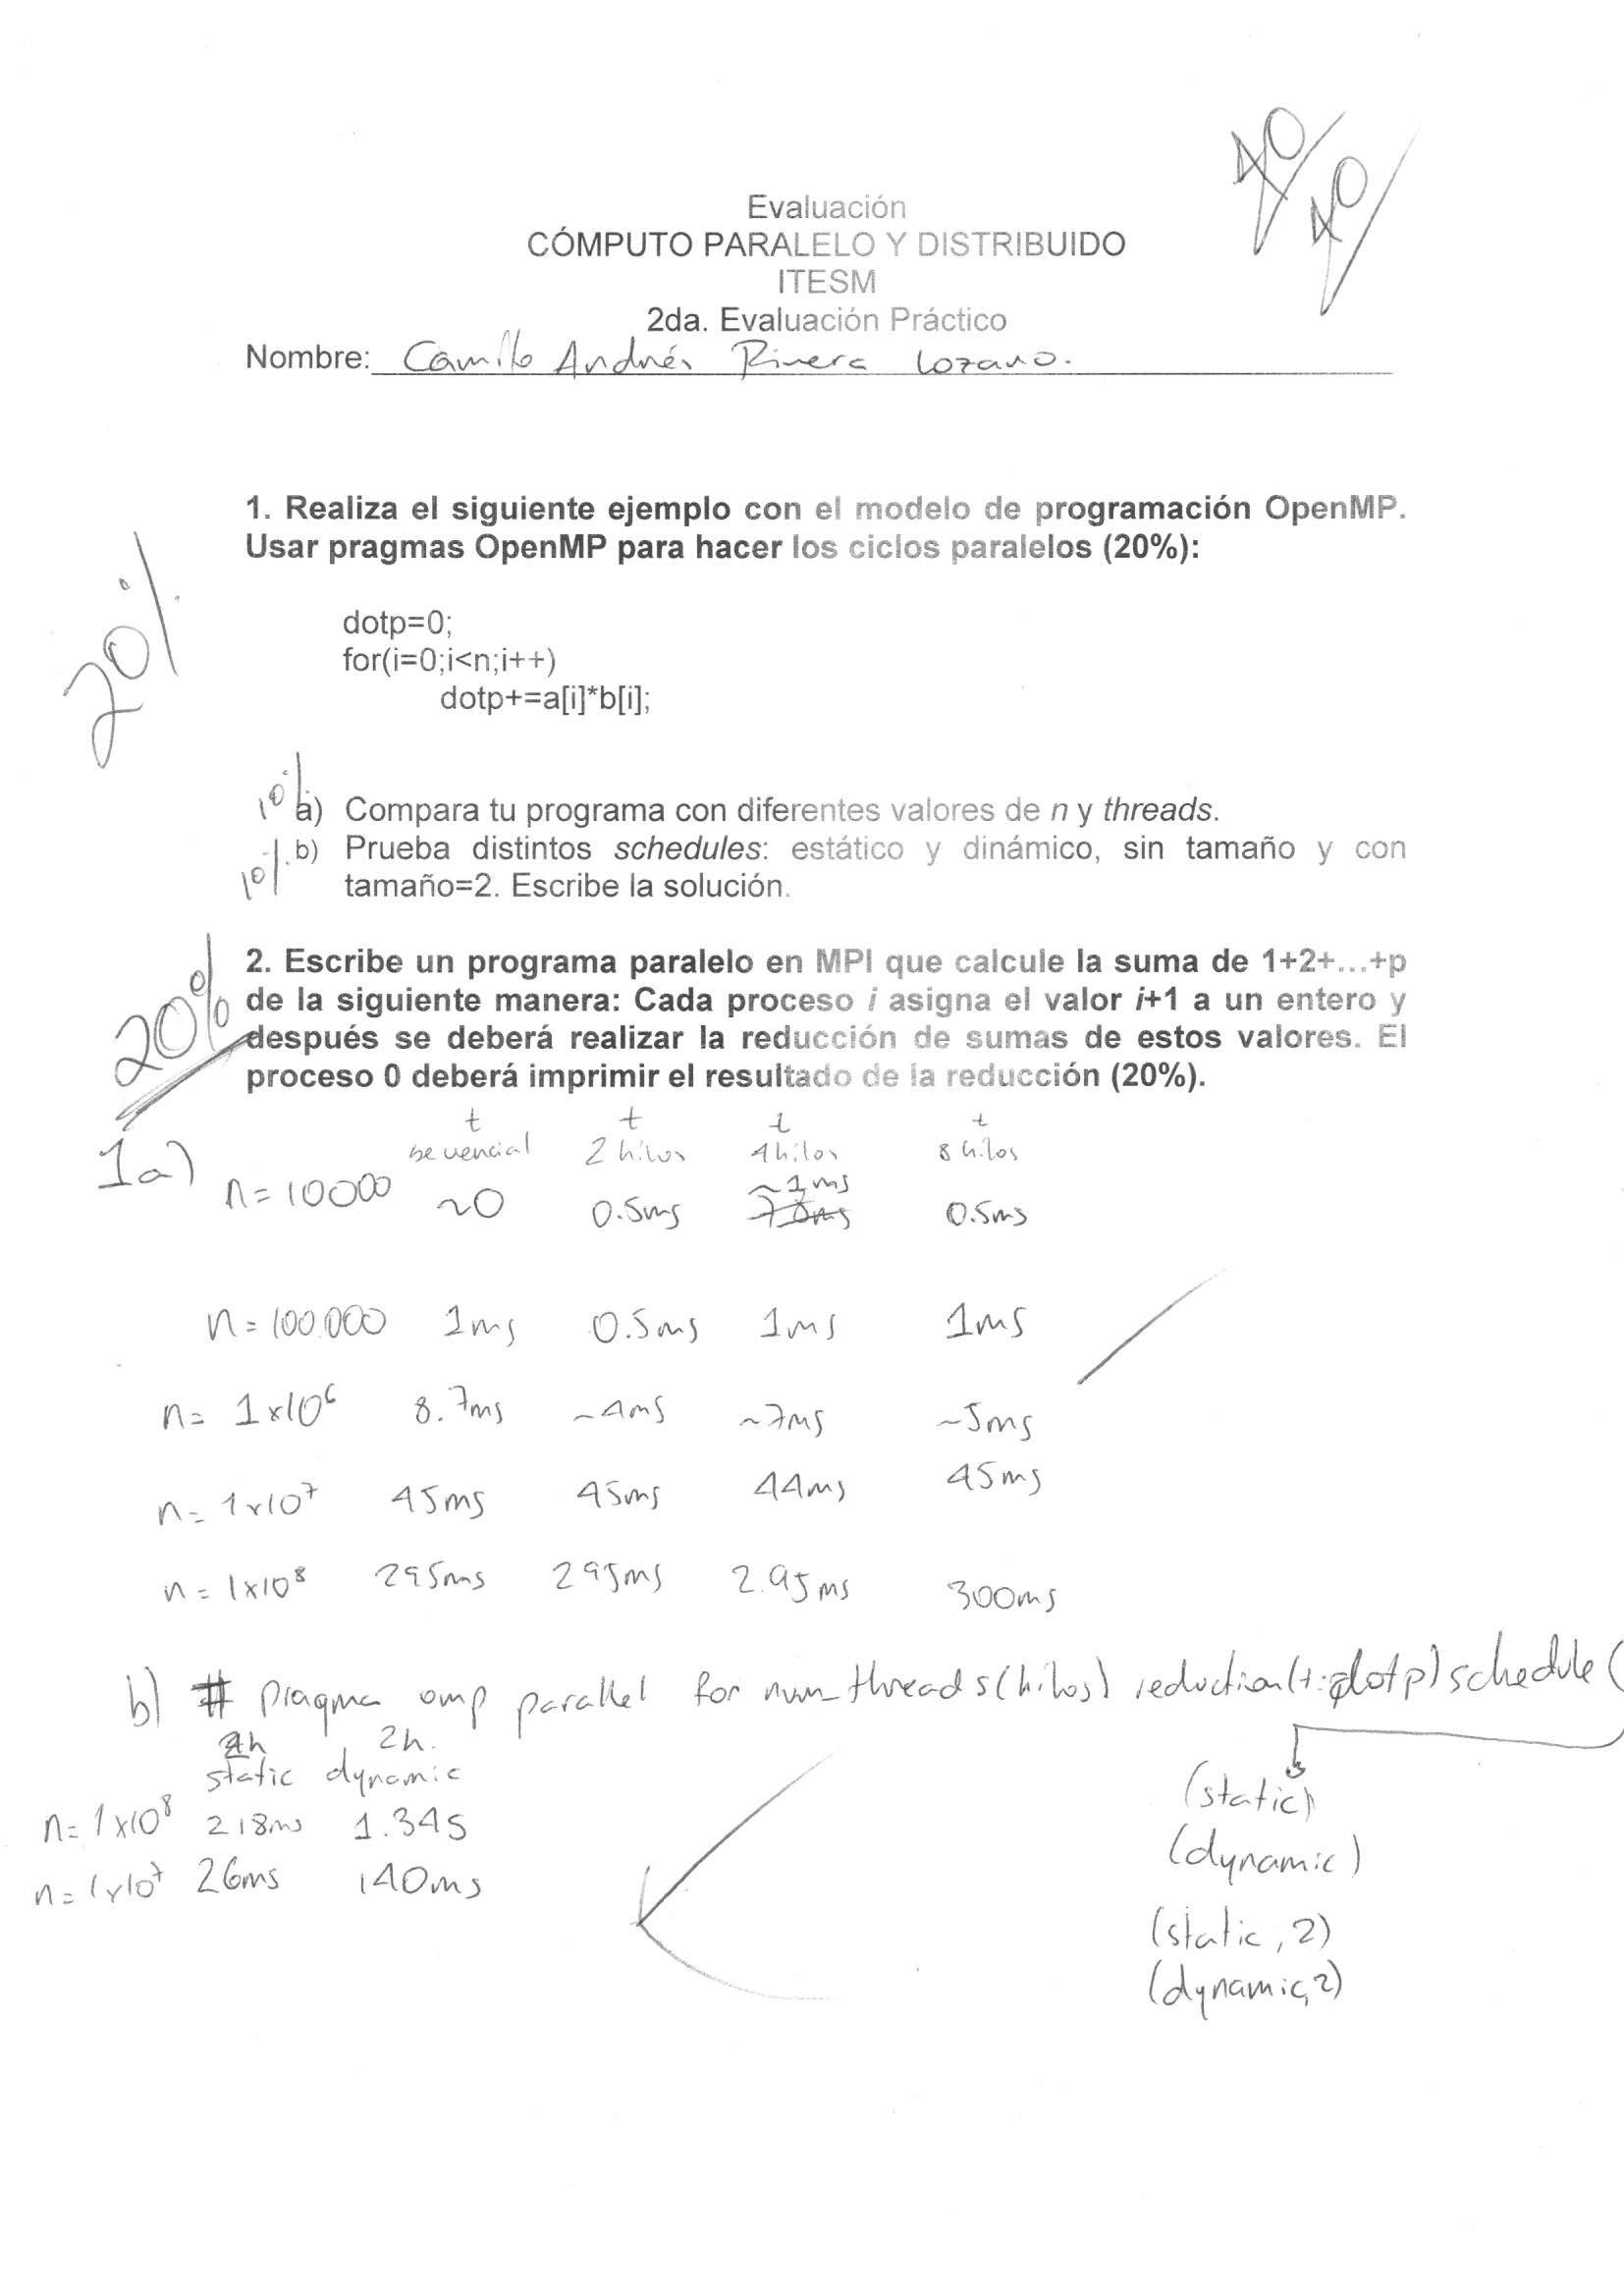 40/40
Evaluación
CÓMPUTO PARALELO Y DISTRIBUIDO
ITESM
2da. Evaluación Práctico
Nombre: Camilo Andrés Rivera Lozano.
1. Realiza el siguiente ejemplo con el modelo de programación OpenMP.
Usar pragmas OpenMP para hacer los ciclos paralelos (20%):
20%
dotp=0;
for(i=0;i<n;i++)
dotp+=a[i]*b[i];
10% a) Compara tu programa con diferentes valores de n y threads.
10% b) Prueba distintos schedules: estático y dinámico, sin tamaño y con
tamaño=2. Escribe la solución.
20%
2. Escribe un programa paralelo en MPI que calcule la suma de 1+2+...+p
de la siguiente manera: Cada proceso i asigna el valor i+1 a un entero y
después se deberá realizar la reducción de sumas de estos valores. El
proceso 0 deberá imprimir el resultado de la reducción (20%).
t t t t
1a) secuencial 2 hilos 4 hilos 8 hilos
n=10000 ~0 0.5ms ~1ms 0.5ms
n=100.000 1ms 0.5ms 1ms 1ms
n= 1x10⁶ 8.7ms ~4ms ~7ms ~5ms
n= 1x10⁷ 45ms 45ms 44ms 45ms
n=1x10⁸ 295ms 295ms 2.95ms 300ms
b) # pragma omp parallel for num_threads(hilos) reduction(+:dotp) schedule(
2h 2h.
static dynamic
n=1x10⁸ 218ms 1.34s
n=1x10⁷ 26ms 140ms
(static)
(dynamic)
(static, 2)
(dynamic, 2)